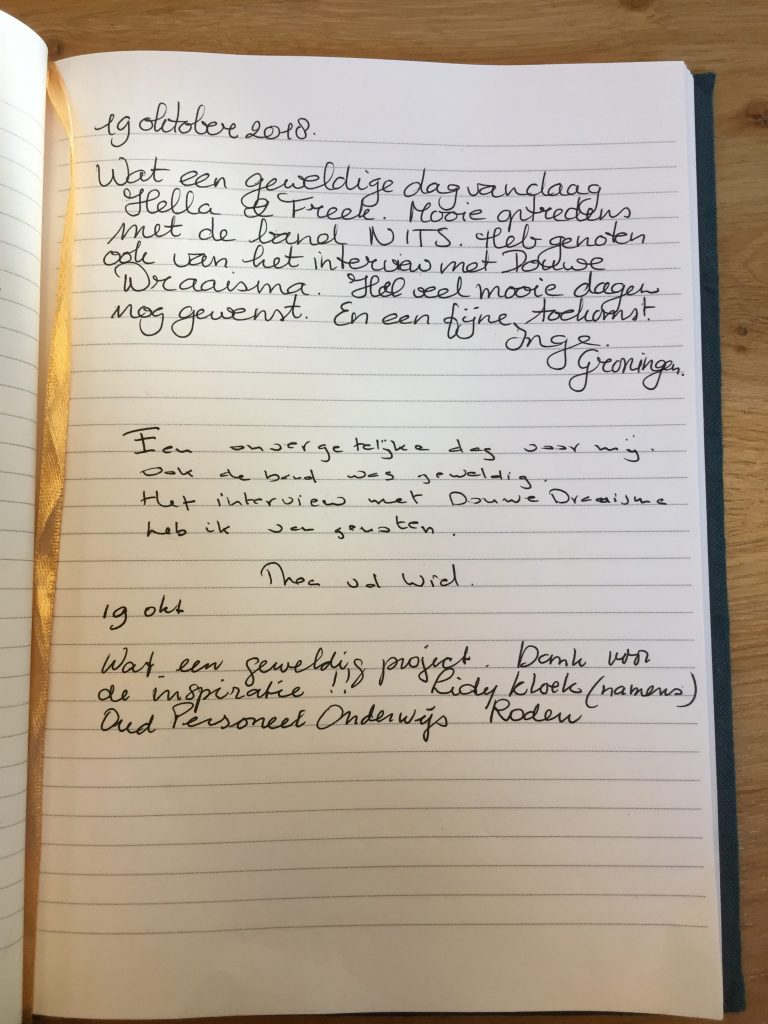 19 oktober 2018.
Wat een geweldige dag vandaag
Hella & Freek. Mooie optredens
met de band NITS. Heb genoten
ook van het interview met Douwe
Draaisma. Heel veel mooie dagen
nog gewenst. En een fijne toekomst.
Inge.
Groningen.
Een onvergetelijke dag voor mij.
Ook de band was geweldig.
Het interview met Douwe Draaisma
heb ik van genoten.
Thea vd Wiel.
19 okt
Wat een geweldig project. Dank voor
de inspiratie !! Lidy Kloek (namens)
Oud Personeel Onderwijs Roden